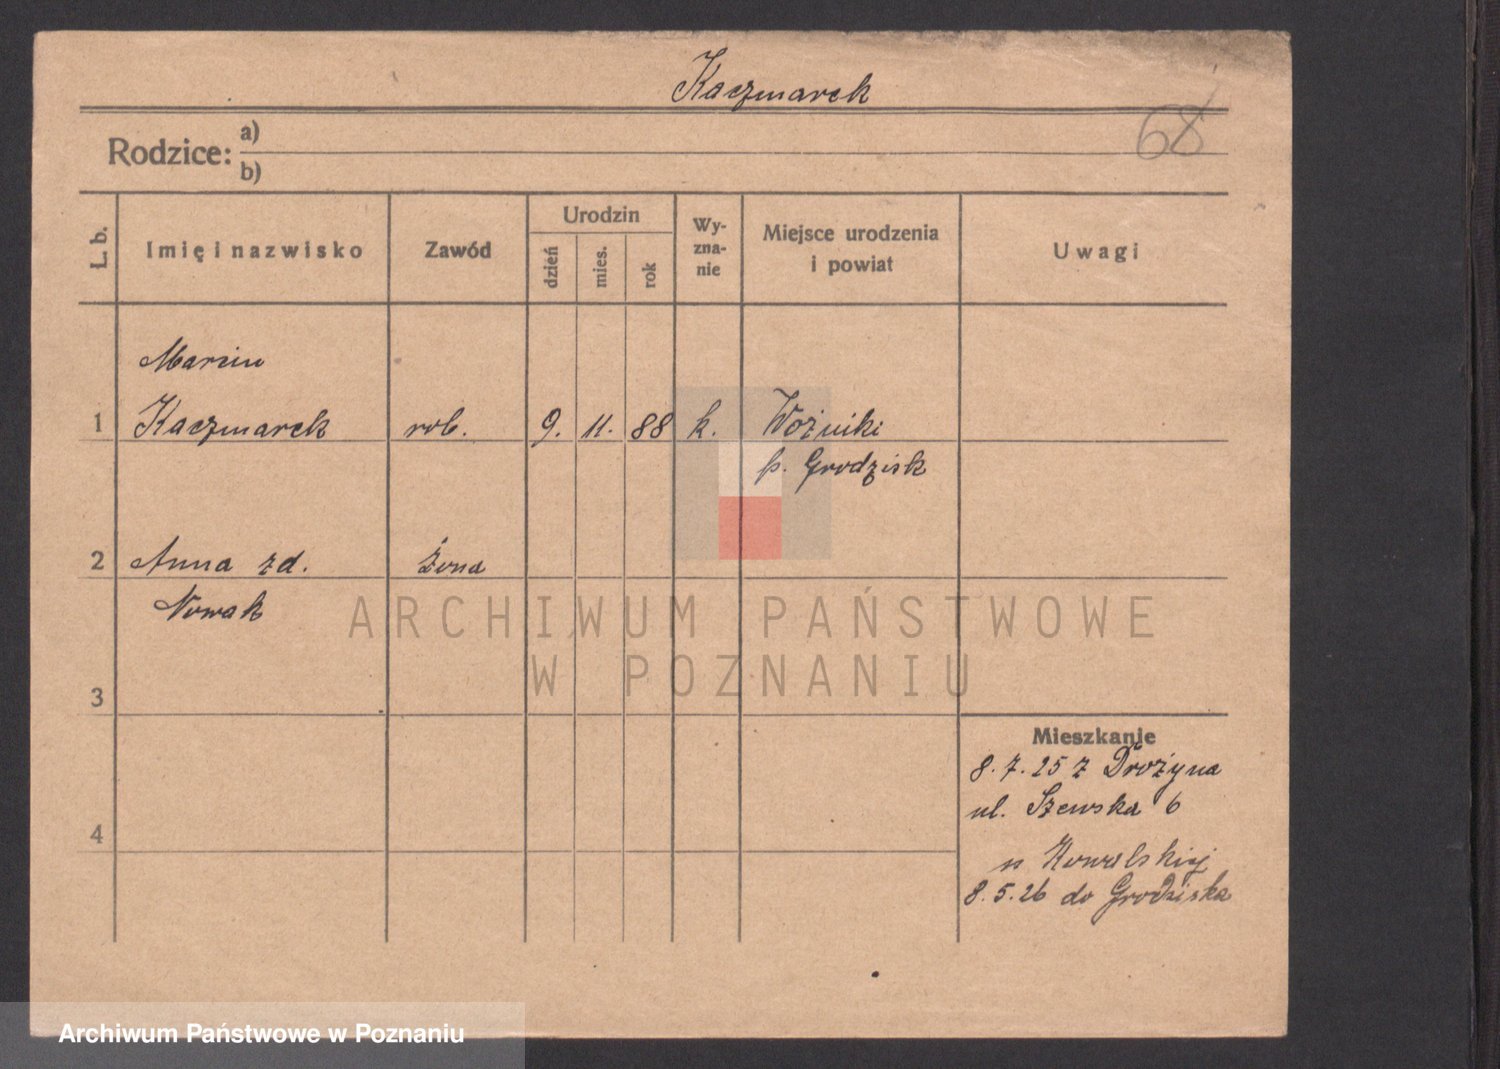 Kaczmarek
68
Rodzice: a)
b)
L. b.
Imię i nazwisko
Zawód
Urodzin
dzień
mies.
rok
Wy-
zna-
nie
Miejsce urodzenia
i powiat
Uwagi
Marcin
1 Kaczmarek rob. 9. 11. 88 k. Woźniki
p. Grodzisk
2 Anna zd. Żona
Nowak
ARCHIWUM PAŃSTWOWE
W POZNANIU
3
Mieszkanie
8.7.25 z Drożyna
ul. Szewska 6
4
u Kowalskiej
8.5.26 do Grodziska
Archiwum Państwowe w Poznaniu